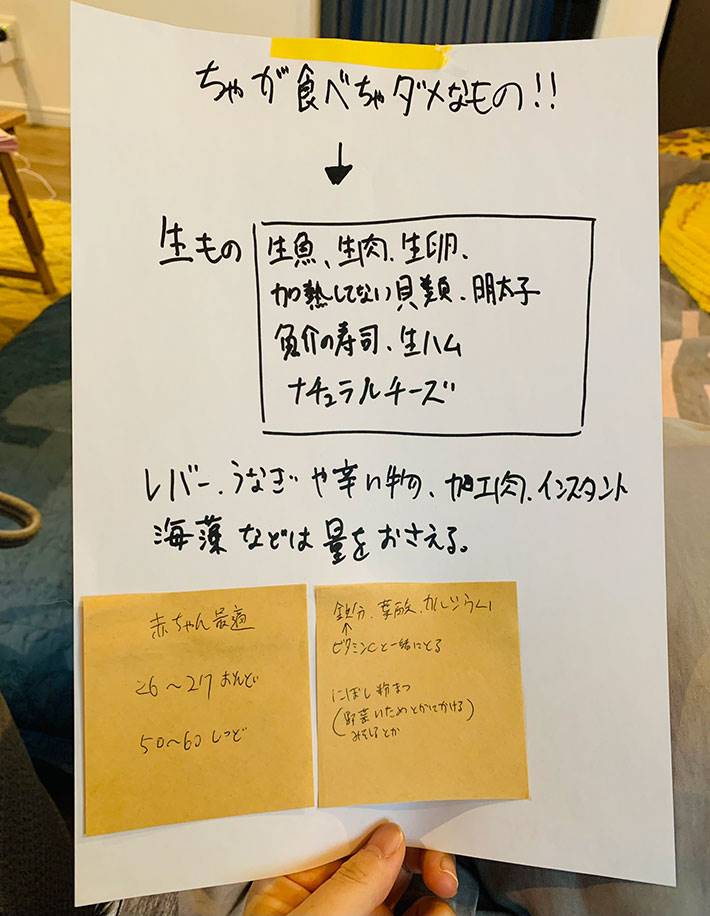 ちゃが食べちゃダメなもの!!
↓
生もの
生魚、生肉、生卵、
加熱してない貝類、明太子
魚介の寿司、生ハム
ナチュラルチーズ
レバー、うなぎや辛い物、加工肉、インスタント
海藻などは量をおさえる。
赤ちゃん最適
26〜27おんど
50〜60しつど
鉄分、葉酸、カルシウム
↑
ビタミンCと一緒にとる
にぼし粉まつ
(野菜いためとかにかける)
みそしるとか